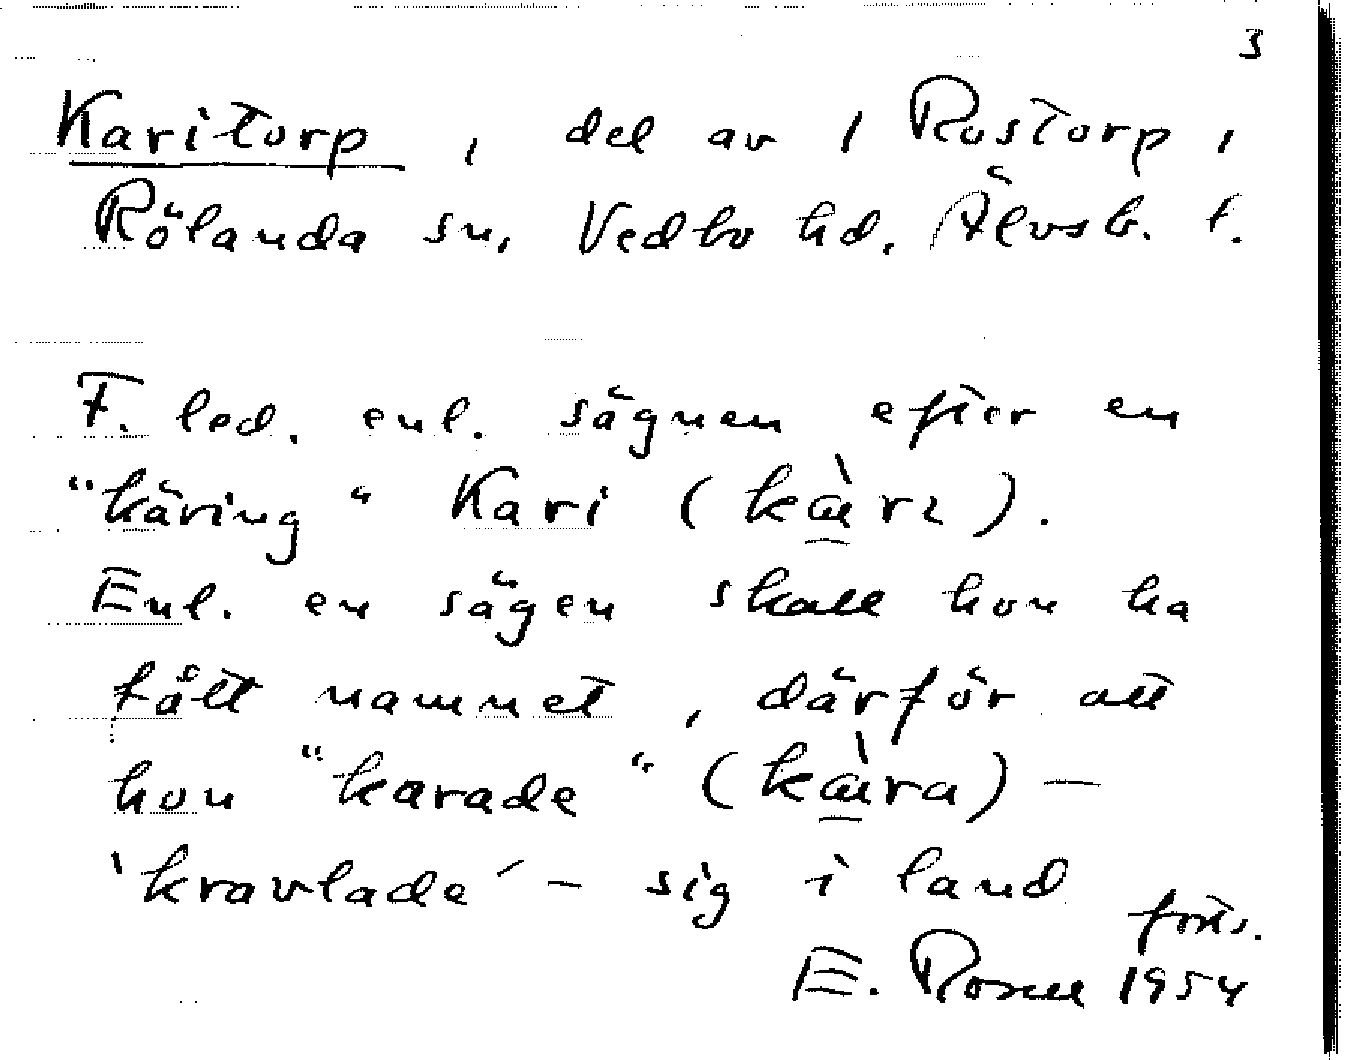 3
Karitorp, del av 1 Rostorp,
Rölanda sn, Vedbo hd. Älvsb. l.
F. led. enl. sägnen efter en
"käring" Kari (kàrɩ).
Enl. en sägen skall hon ha
fått namnet, därför att
hon "karade" (kàra) —
'kravlade' – sig i land
forts.
E. Rosell 1954